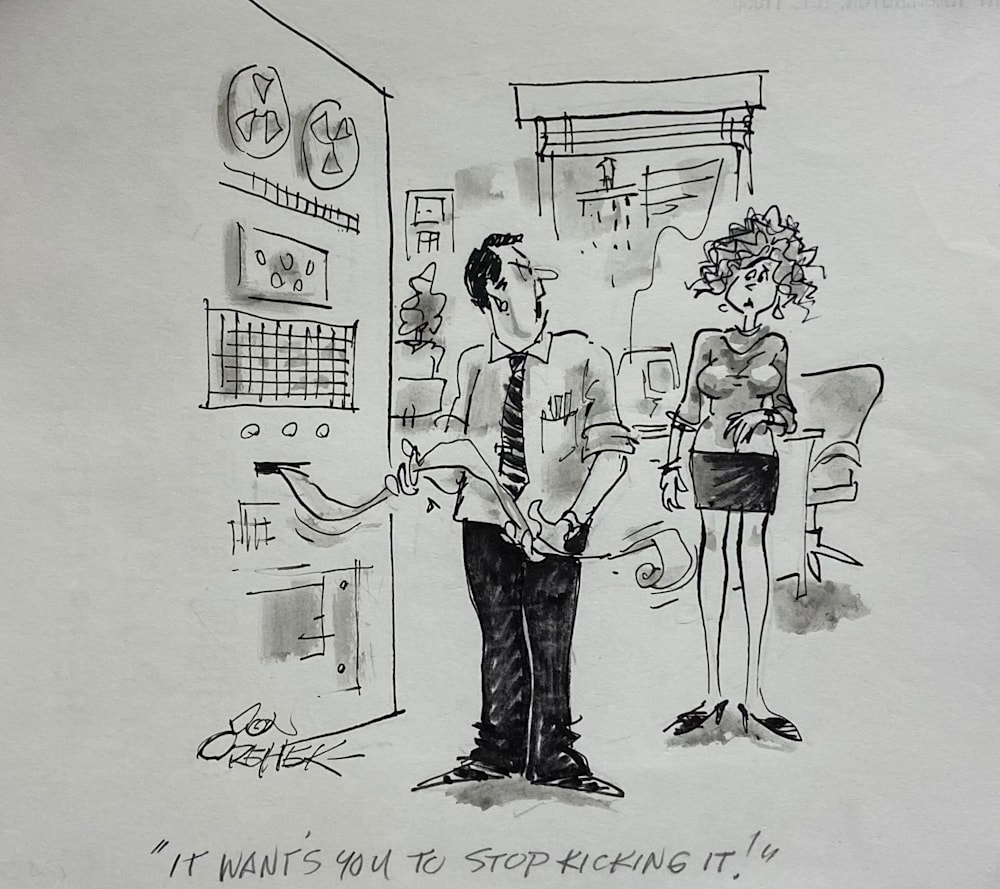 DON
OREHEK
"IT WANT'S YOU TO STOP KICKING IT!"